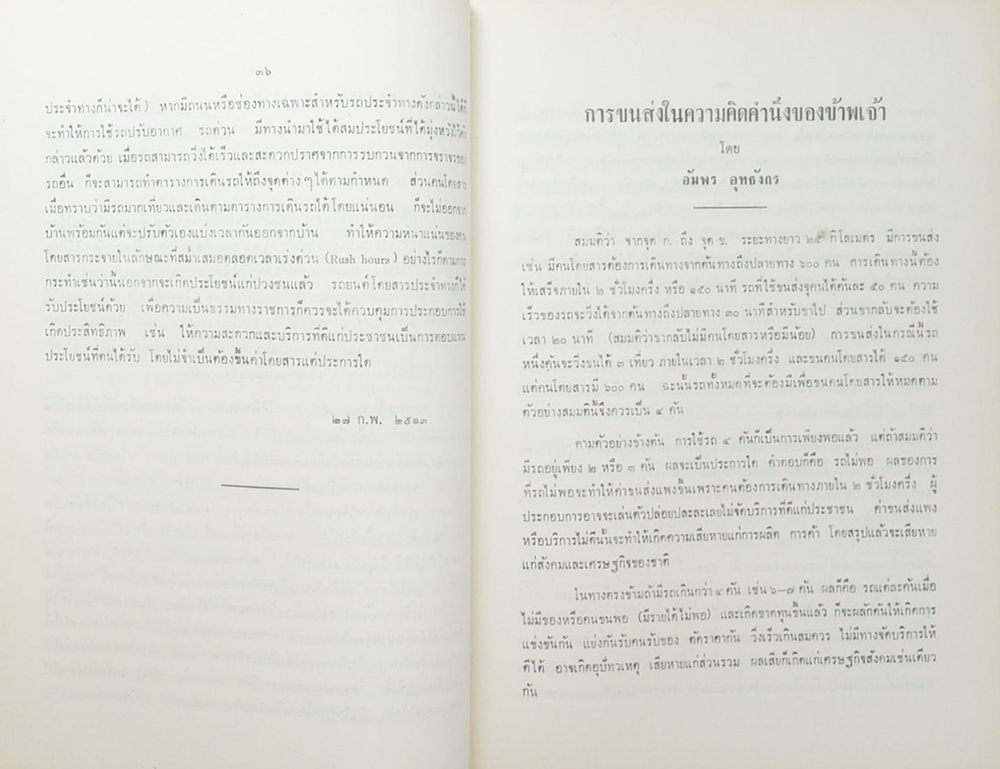 ๓๖
ประจำทางก็น่าจะได้) หากมีถนนหรือช่องทางเฉพาะสำหรับรถประจำทางดังกล่าวนี้ได้ก็
จะทำให้การใช้รถปรับอากาศ รถด่วน มีทางนำมาใช้ได้สมประโยชน์ที่ได้มุ่งหวังไว้ดัง
กล่าวแล้วด้วย เมื่อรถสามารถวิ่งได้เร็วและสะดวกปราศจากการรบกวนจากการจราจรของ
รถอื่น ก็จะสามารถทำตารางการเดินรถให้ถึงจุดต่าง ๆ ได้ตามกำหนด ส่วนคนโดยสาร
เมื่อทราบว่ามีรถมากเที่ยวและเดินตามตารางการเดินรถได้โดยแน่นอน ก็จะไม่ออกจาก
บ้านพร้อมกันแต่จะปรับตัวเองแบ่งเวลากันออกจากบ้าน ทำให้ความหนาแน่นของคน
โดยสารกระจายในลักษณะที่สม่ำเสมอตลอดเวลาเร่งด่วน (Rush hours) อย่างไรก็ตามการ
กระทำเช่นว่านั้นนอกจากจะเกิดประโยชน์แก่ปวงชนแล้ว รถยนต์โดยสารประจำทางก็ได้
รับประโยชน์ด้วย เพื่อความเป็นธรรมทางราชการก็ควรจะได้ควบคุมการประกอบการให้
เกิดประสิทธิภาพ เช่น ให้ความสะดวกและบริการที่ดีแก่ประชาชนเป็นการตอบแทน
ประโยชน์ที่ตนได้รับ โดยไม่จำเป็นต้องขึ้นค่าโดยสารแต่ประการใด
๒๗ ก.พ. ๒๕๑๓
การขนส่งในความคิดคำนึงของข้าพเจ้า
โดย
อัมพร อุทธังกร
สมมติว่า จากจุด ก. ถึง จุด ข. ระยะทางยาว ๒๕ กิโลเมตร มีการขนส่ง
เช่น มีคนโดยสารต้องการเดินทางจากต้นทางถึงปลายทาง ๖๐๐ คน การเดินทางนี้ต้อง
ให้เสร็จภายใน ๒ ชั่วโมงครึ่ง หรือ ๑๕๐ นาที รถที่ใช้ขนส่งจุคนได้คันละ ๕๐ คน ความ
เร็วของรถจะวิ่งได้จากต้นทางถึงปลายทาง ๓๐ นาทีสำหรับขาไป ส่วนขากลับจะต้องใช้
เวลา ๒๐ นาที (สมมติว่าขากลับไม่มีคนโดยสารหรือมีน้อย) การขนส่งในกรณีนี้รถ
หนึ่งคันจะวิ่งขนได้ ๓ เที่ยว ภายในเวลา ๒ ชั่วโมงครึ่ง และขนคนโดยสารได้ ๑๕๐ คน
แต่คนโดยสารมี ๖๐๐ คน ฉะนั้นรถทั้งหมดที่จะต้องมีเพื่อขนคนโดยสารให้หมดตาม
ตัวอย่างสมมตินี้จึงควรเป็น ๔ คัน
ตามตัวอย่างข้างต้น การใช้รถ ๔ คันก็เป็นการเพียงพอแล้ว แต่ถ้าสมมติว่า
มีรถอยู่เพียง ๒ หรือ ๓ คัน ผลจะเป็นประการใด คำตอบก็คือ รถไม่พอ ผลของการ
ที่รถไม่พอจะทำให้ค่าขนส่งแพงขึ้นเพราะคนต้องการเดินทางภายใน ๒ ชั่วโมงครึ่ง ผู้
ประกอบการอาจจะเล่นตัวปล่อยปละละเลยไม่จัดบริการที่ดีแก่ประชาชน ค่าขนส่งแพง
หรือบริการไม่ดีนั้นจะทำให้เกิดความเสียหายแก่การผลิต การค้า โดยสรุปแล้วจะเสียหาย
แก่สังคมและเศรษฐกิจของชาติ
ในทางตรงข้ามถ้ามีรถเกินกว่า ๔ คัน เช่น ๖–๗ คัน ผลก็คือ รถแต่ละคันเมื่อ
ไม่มีของหรือคนขนพอ (มีรายได้ไม่พอ) และเกิดขาดทุนขึ้นแล้ว ก็จะผลักดันให้เกิดการ
แข่งขันกัน แย่งกันรับคนรับของ ตัดราคากัน วิ่งเร็วเกินสมควร ไม่มีทางจัดบริการให้
ดีได้ อาจเกิดอุบัทวเหตุ เสียหายแก่ส่วนรวม ผลเสียก็เกิดแก่เศรษฐกิจสังคมเช่นเดียว
กัน